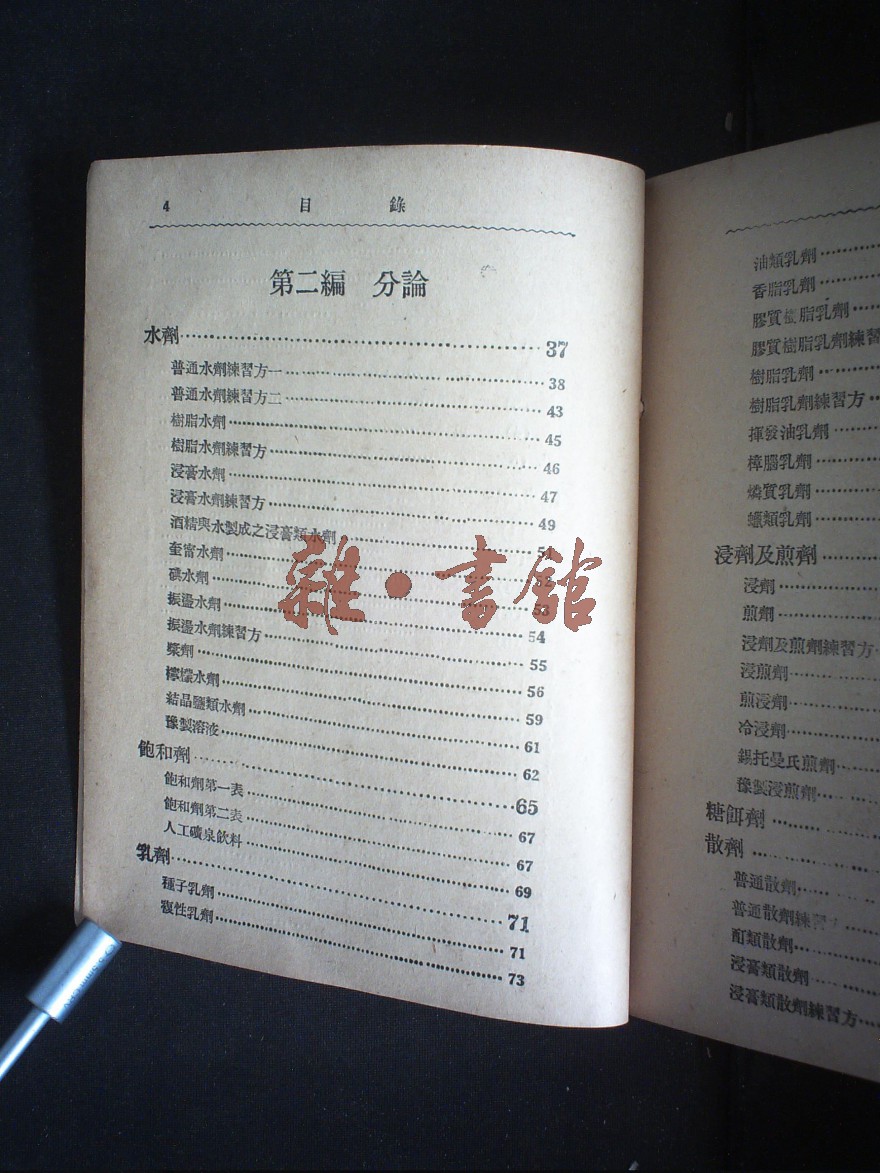 4 目錄
第二編 分論
水劑 37
普通水劑練習方一 38
普通水劑練習方二 43
樹脂水劑 45
樹脂水劑練習方 46
浸膏水劑 47
浸膏水劑練習方 49
酒精與水製成之浸膏類水劑 51
奎甯水劑 52
碘水劑 53
振盪水劑 54
振盪水劑練習方 55
漿劑 56
檸檬水劑 59
結晶鹽類水劑 61
豫製溶液 62
飽和劑 65
飽和劑第一表 67
飽和劑第二表 67
人工礦泉飲料 69
乳劑 71
種子乳劑 71
複性乳劑 73
雜·書館
油類乳劑
香脂乳劑
膠質樹脂乳劑
膠質樹脂乳劑練習
樹脂乳劑
樹脂乳劑練習方
揮發油乳劑
樟腦乳劑
燐質乳劑
蠟類乳劑
浸劑及煎劑
浸劑
煎劑
浸劑及煎劑練習方
浸煎劑
煎浸劑
冷浸劑
錫托曼氏煎劑
豫製浸煎劑
糖餌劑
散劑
普通散劑
普通散劑練習方
酊類散劑
浸膏類散劑
浸膏類散劑練習方